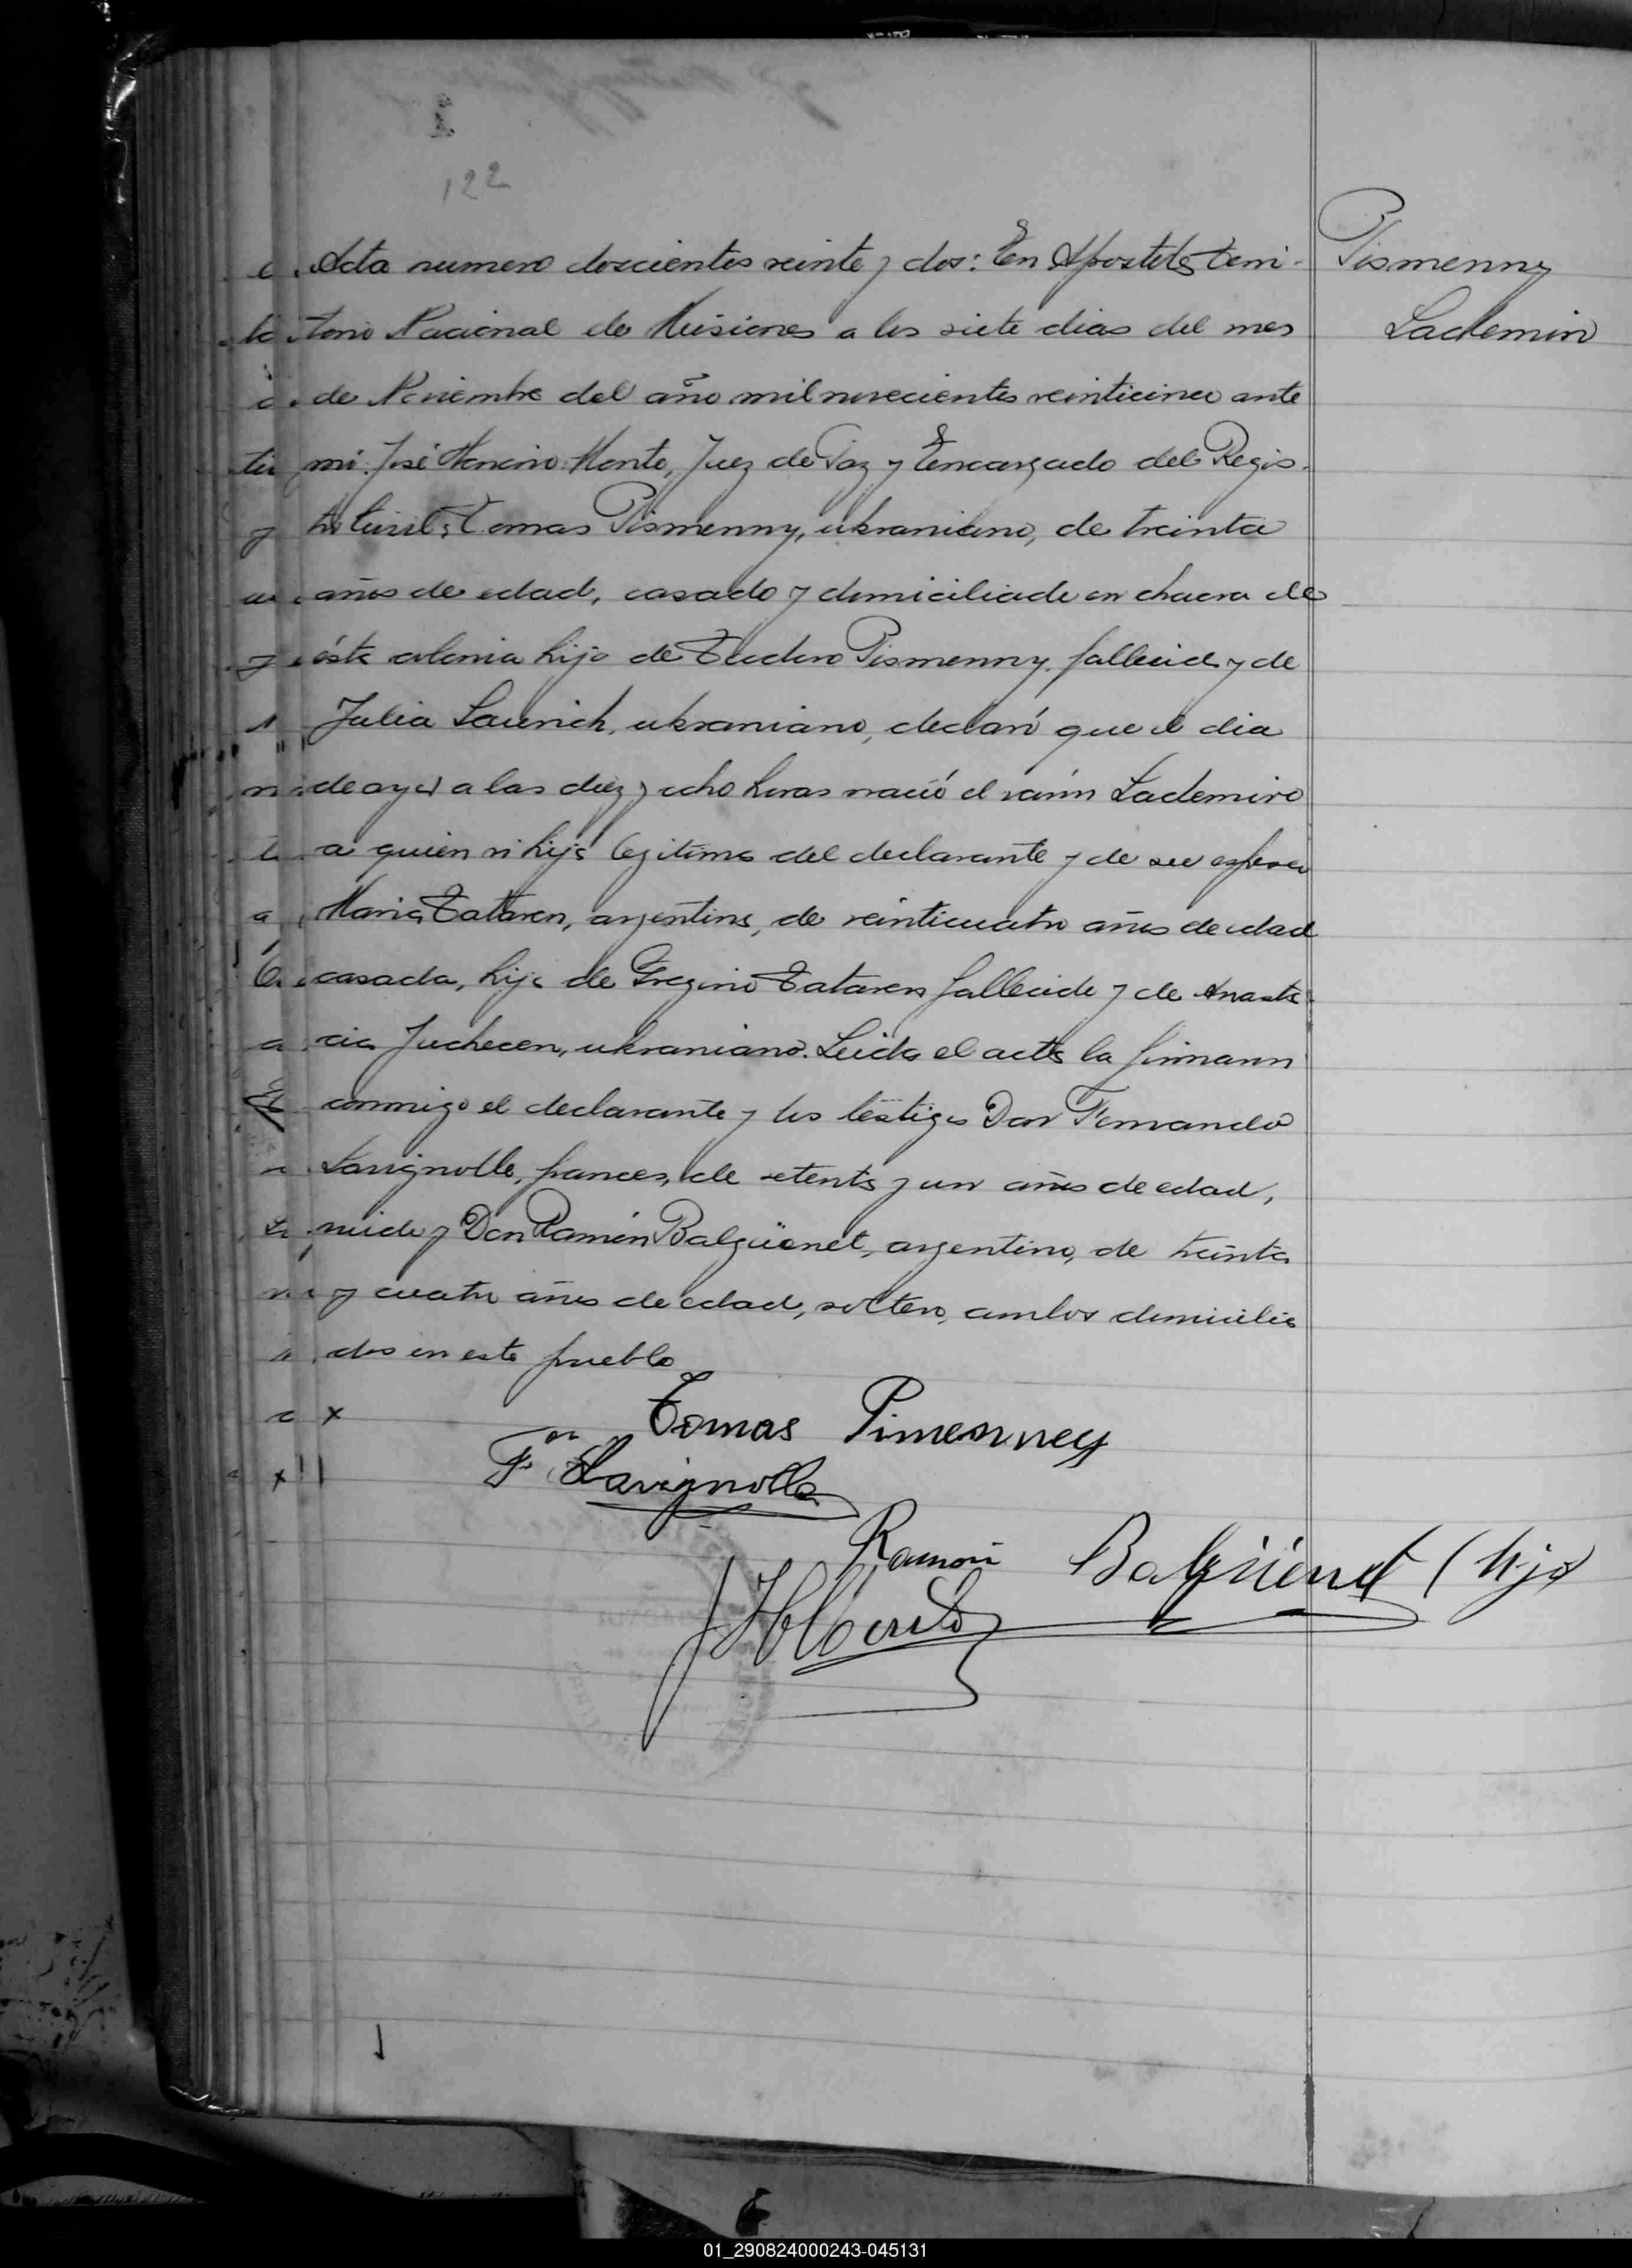 122
Acta numero doscientos veinte y dos: En Apostoles Terri-
torio Nacional de Misiones a los siete dias del mes
de Noviembre del año mil novecientos veinticinco ante
mi José Monte, Juez de Paz y Encargado del Regis-
tro Civil; Tomas Pismenny, ukraniano, de treinta
años de edad, casado y domiciliado en chacra de
ésta colonia hijo de Teodoro Pismenny, fallecido y de
Julia Laurich, ukraniano, declaró que el dia
de ayer a las diez y ocho horas nació el varón Lademiro
a quien vi hijo legitimo del declarante y de su esposa
Maria Tataren, argentina, de veinticuatro años de edad
casada, hija de Gregorio Tataren fallecido y de Anasta-
cia Juchecen, ukraniano. Leida el acta la firmann
conmigo el declarante y los testigos Don Fernando
Lavignolle, frances, de setenta y un años de edad,
viudo y Don Ramón Balgüenet, argentino, de treinta
y cuatro años de edad, soltero, ambos domicilia
dos en este pueblo
Tomas Pimenney
F. Lavignolle
Ramón Balgüenet (hijo)
Pismenny
Lademiro
01_290824000243-045131